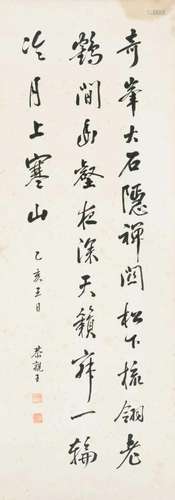 奇峯大石隱禪關松下梳翎老
鶴閒幽壑夜深天籟寂一輪
冷月上寒山
乙亥五月 恭親王